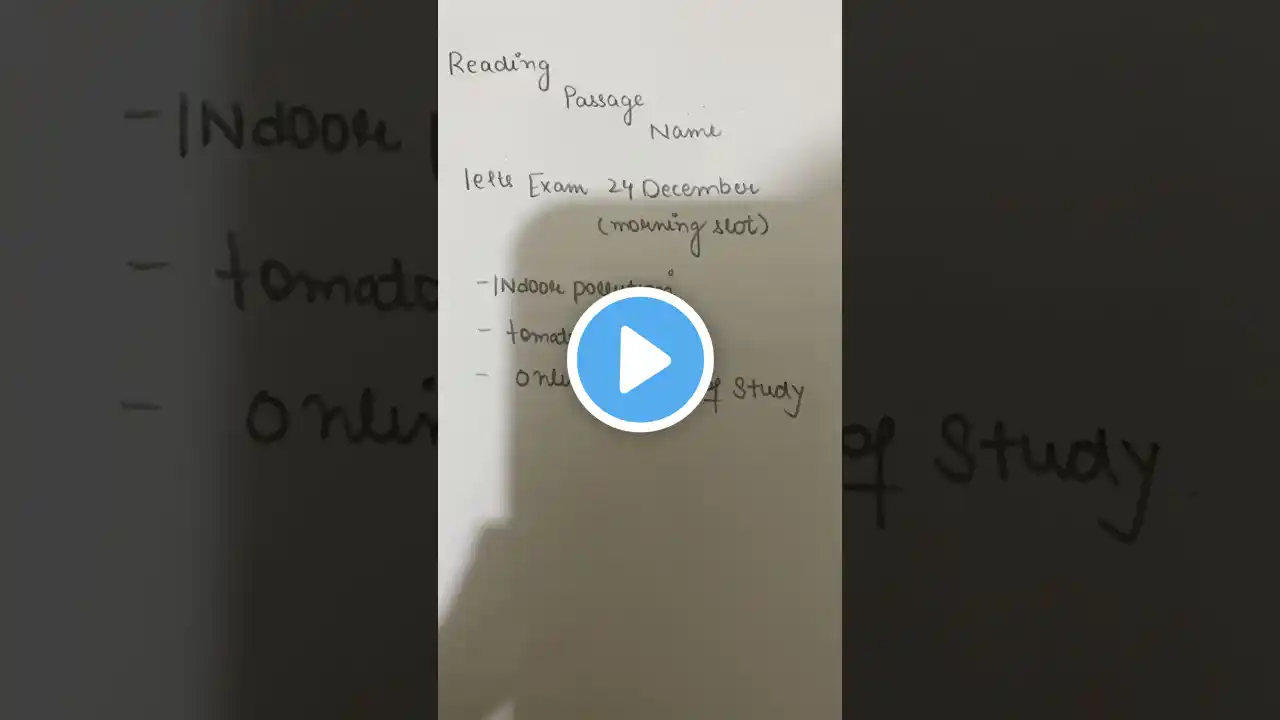 Reading
Passage
Name
Ielts Exam 24 December
(morning slot)
- INdoor pollution
- tomato
- Online of Study